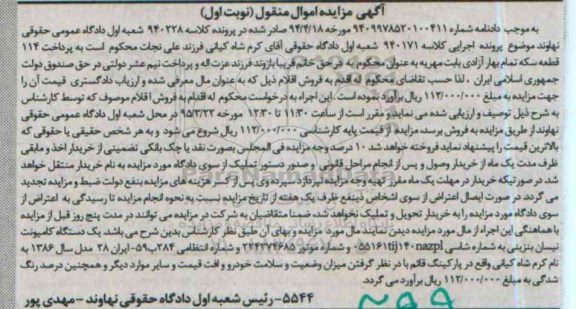 آگهی مزایده اموال منقول (نوبت اول)
به موجب دادنامه شماره ۹۴۰۹۹۷۸۵۲۰۱۰۰۴۱۱ مورخه ۹۴/۴/۱۸ صادر شده در پرونده کلاسه ۹۴۰۲۲۸ شعبه اول دادگاه عمومی حقوقی
نهاوند موضوع پرونده اجرایی کلاسه ۹۴۰۱۷۱ شعبه اول دادگاه حقوقی آقای کرم شاه کیانی فرزند علی نجات محکوم است به پرداخت ۱۱۴
قطعه سکه تمام بهار آزادی بابت مهریه به عنوان محکوم به در حق خانم فریبا بازوند فرزند عزت اله و پرداخت نیم عشر دولتی در حق صندوق دولت
جمهوری اسلامی ایران . لذا حسب تقاضای محکوم له اقدام به فروش اقلام ذیل که به عنوان مال معرفی شده و ارزیاب دادگستری قیمت آن را
جهت مزایده به مبلغ ۱۱۲/۰۰۰/۰۰۰ ریال برآورد نموده است . این اجراء به درخواست محکوم له اقدام به فروش اقلام موصوف که توسط کارشناس
به شرح ذیل توصیف و ارزیابی شده می نماید و مقرر است از ساعت ۱۱:۳۰ تا ۱۲:۳۰ مورخه ۹۵/۳/۲۲ در محل شعبه اول دادگاه عمومی حقوقی
نهاوند از طریق مزایده به فروش برسد. مزایده از قیمت پایه کارشناسی ۱۱۲/۰۰۰/۰۰۰ ریال شروع می شود و به هر شخص حقیقی یا حقوقی که
بالاترین قیمت را پیشنهاد نماید فروخته خواهد شد ۱۰ درصد وجه مزایده فی المجلس بصورت نقد یا چک بانکی تضمینی از خریدار اخذ و مابقی
ظرف مدت یک ماه از خریدار وصول و پس از انجام مراحل قانونی و صدور دستور تملیک از سوی دادگاه مورد مزایده به نام خریدار منتقل خواهد
شد. در صورتیکه خریدار در مهلت یک ماه مقرر بهیه وجه مزایده نپردازد سپرده وی پس از کسر هزینه های مزایده بنفع دولت ضبط و مزایده تجدید
می گردد. در صورت ایصال اعتراض از سوی اشخاص ذینفع ظرف یک هفته از تاریخ مزایده نسبت به نحوه انجام مزایده تا رسیدگی به اعتراض از
سوی دادگاه مورد مزایده را به خریدار تحویل و تملیک نخواهد شد. ضمنا متقاضیان به شرکت در مزایده می توانند در مدت پنج روز قبل از مزایده
با هماهنگی این اجراء از مال مورد مزایده دیدن نمایند مال مورد مزایده و بهای آن طبق نظر کارشناس بدین شرح می باشد. یک دستگاه کامیونت
نیسان بنزینی به شماره شاسی nazpl۱۴۰tij۰۵۵۱۶۱ و شماره موتور ۲۴۴۳۷۴۶۸۵ و شماره انتظامی ۲۸۴ب۵۹-ایران ۲۸ مدل سال ۱۳۸۶ به
نام کرم شاه کیانی واقع در پارکینگ قائم با در نظر گرفتن میزان وضعیت و سلامت خودرو و افت قیمت و سایر موارد دیگر و همچنین درصد رنگ
شدگی به مبلغ ۱۱۲/۰۰۰/۰۰۰ ریال برآورد می گردد.
۵۵۴۴- رئیس شعبه اول دادگاه حقوقی نهاوند - مهدی پور